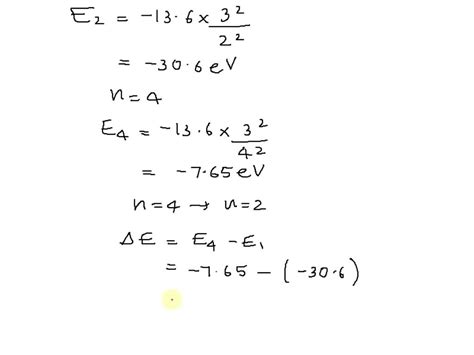 E₂ = -13.6 × 3²/2²
= -30.6 eV
n = 4
E₄ = -13.6 × 3²/4²
= -7.65 eV
n = 4 → n = 2
ΔE = E₄ - E₁
= -7.65 - (-30.6)